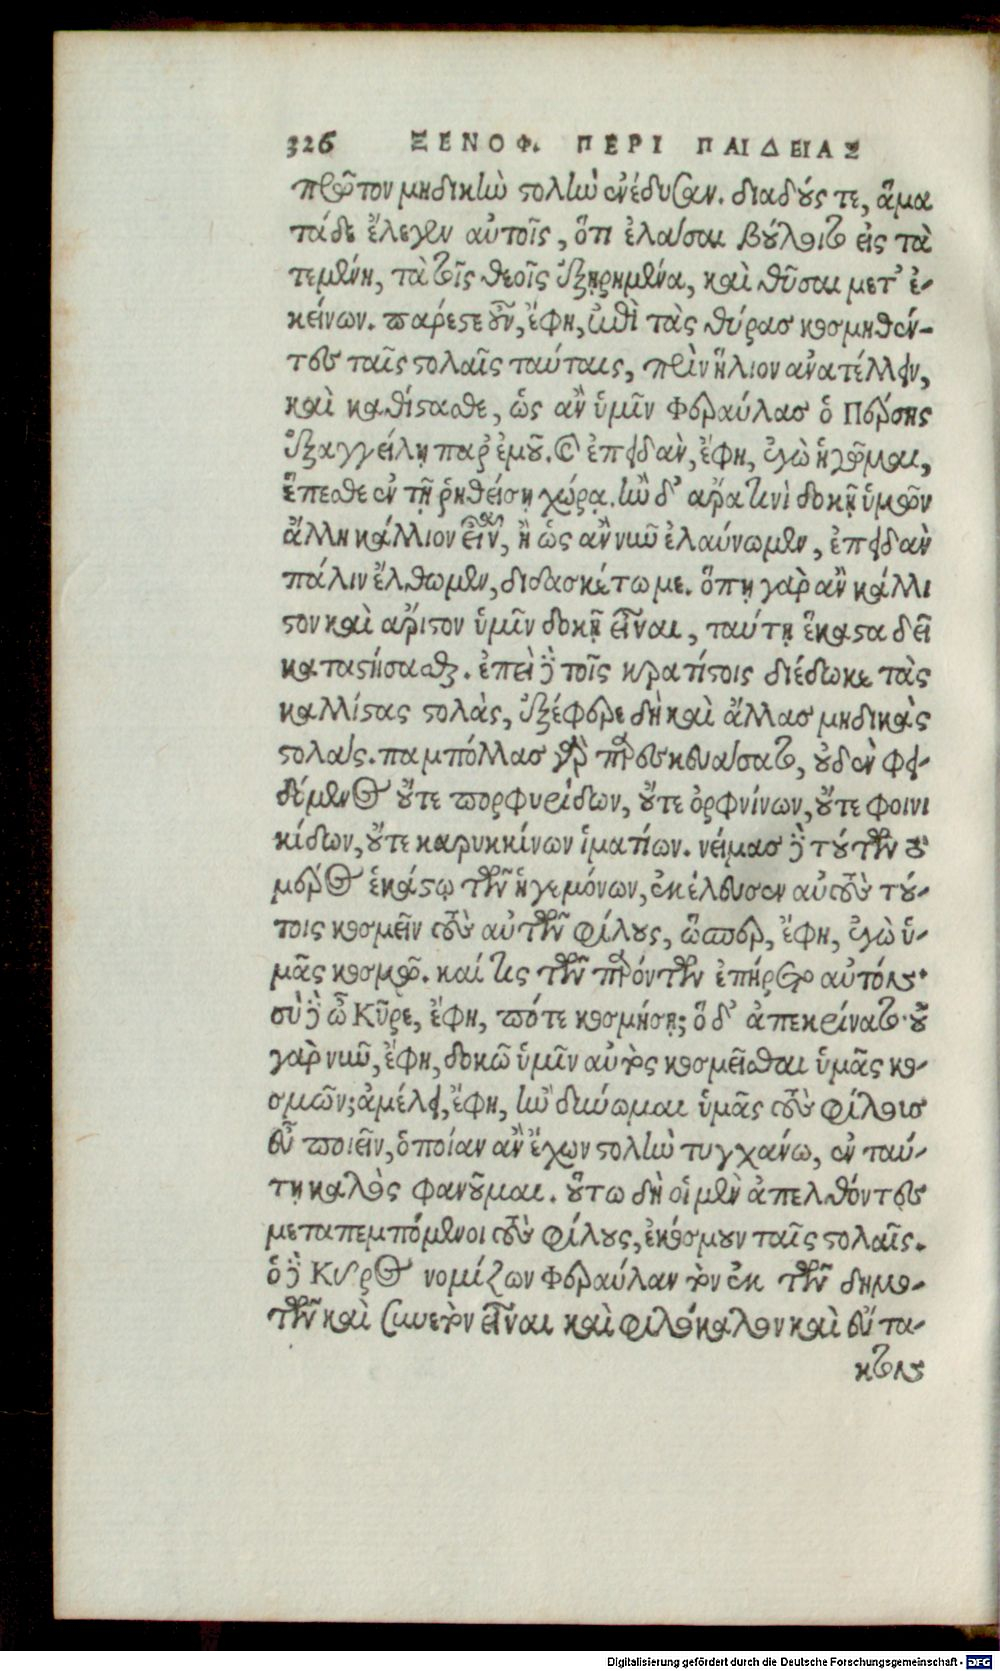 326 ΞΕΝΟΦ. ΠΕΡΙ ΠΑΙΔΕΙΑΣ
πρῶτον μηδικὴν στολὴν ἐνέδυσαν. διαδούς τε, ἅμα
τάδε ἔλεγεν αὐτοῖς, ὅτι ἐλάσαι βούλοιτο εἰς τὰ
τεμένη, τὰ τοῖς θεοῖς ἐξῃρημένα, καὶ θῦσαι μετ' ἐ-
κείνων. πάρεστε οὖν, ἔφη, ἐπὶ τὰς θύρας κοσμηθέν-
τες ταῖς στολαῖς ταύταις, πρὶν ἥλιον ἀνατέλλειν,
καὶ καθίστασθε, ὡς ἂν ὑμῖν Φεραύλας ὁ Πέρσης
ἐξαγγείλῃ παρ' ἐμοῦ. καὶ ἐπειδὰν, ἔφη, ἐγὼ ἡγῶμαι,
ἕπεσθε ἐν τῇ ῥηθείσῃ χώρᾳ. ἢν δ' ἄρα τινὶ δοκῇ ὑμῶν
ἄλλῃ κάλλιον εἶναι, ἢ ὡς ἂν νῦν ἐλαύνωμεν, ἐπειδὰν
πάλιν ἔλθωμεν, διδασκέτω με. ὅπῃ γὰρ ἂν κάλλι
στον καὶ ἄριστον ὑμῖν δοκῇ εἶναι, ταύτῃ ἕκαστα δεῖ
καταστήσασθαι. ἐπεὶ δὲ τοῖς κρατίστοις διέδωκε τὰς
καλλίστας στολὰς, ἐξέφερε δὴ καὶ ἄλλας μηδικὰς
στολάς. παμπόλλας γὰρ παρεσκευάσατο, οὐδὲν φει-
δόμενος οὔτε πορφυρίδων, οὔτε ὀρφνίνων, οὔτε φοινι
κίδων, οὔτε καρυκκίνων ἱματίων. νείμας δὲ τούτων τὸ
μέρος ἑκάστῳ τῶν ἡγεμόνων, ἐκέλευσεν αὐτοὺς τού-
τοις κοσμεῖν τοὺς αὐτῶν φίλους, ὥσπερ, ἔφη, ἐγὼ ὑ-
μᾶς κοσμῶ. καί τις τῶν παρόντων ἐπήρετο αὐτόν·
σὺ δὲ ὦ Κῦρε, ἔφη, πότε κοσμήσῃ; ὁ δ' ἀπεκρίνατο· οὐ
γὰρ νῦν, ἔφη, δοκῶ ὑμῖν αὐτὸς κοσμεῖσθαι ὑμᾶς κο-
σμῶν; ἀμέλει, ἔφη, ἢν δύνωμαι ὑμᾶς τοὺς φίλους
εὖ ποιεῖν, ὁποίαν ἂν ἔχων στολὴν τυγχάνω, ἐν ταύ-
τῃ καλὸς φανοῦμαι. οὕτω δὴ οἱ μὲν ἀπελθόντες
μεταπεμπόμενοι τοὺς φίλους, ἐκόσμουν ταῖς στολαῖς.
ὁ δὲ Κῦρος νομίζων Φεραύλαν τὸν ἐκ τῶν δημο-
τῶν καὶ συνετὸν εἶναι καὶ φιλόκαλον καὶ εὔτα-
κτον
Digitalisierung gefördert durch die Deutsche Forschungsgemeinschaft - DFG